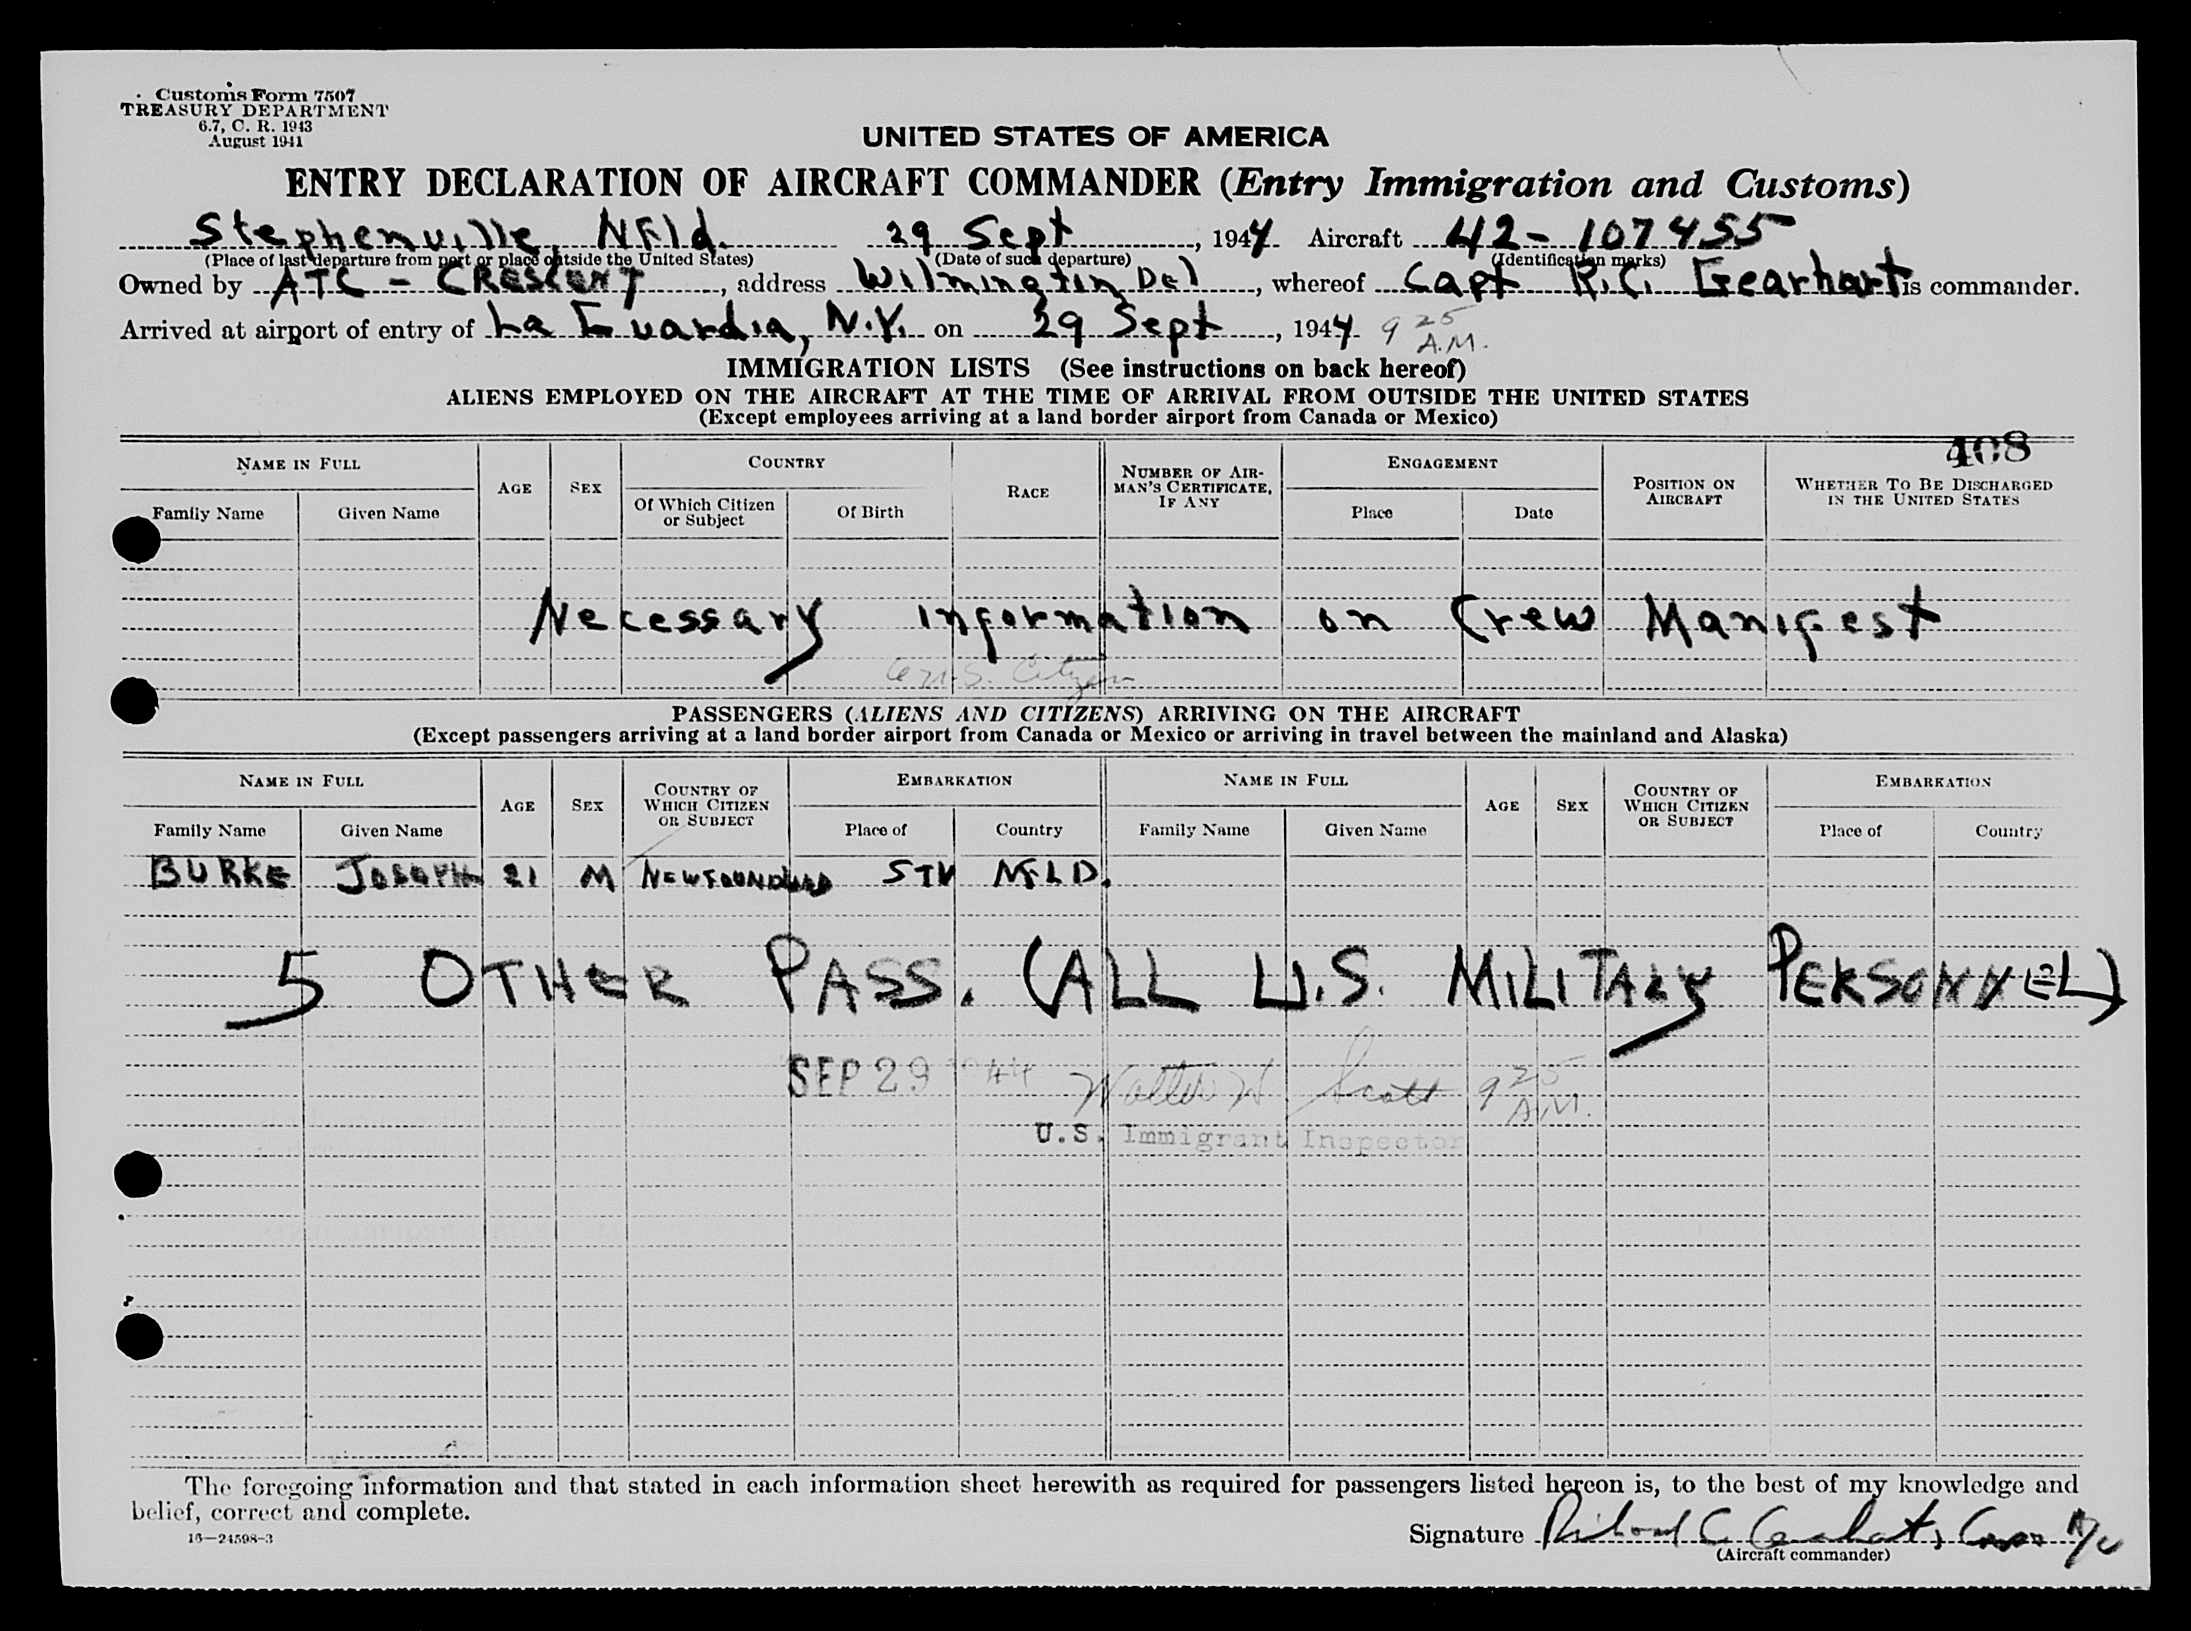 Customs Form 7507
TREASURY DEPARTMENT
6.7, C. R. 1943
August 1941
UNITED STATES OF AMERICA
ENTRY DECLARATION OF AIRCRAFT COMMANDER (Entry Immigration and Customs)
Stephenville, NFld. 29 Sept, 1944 Aircraft 42-107455
(Place of last departure from port or place outside the United States) (Date of such departure) (Identification marks)
Owned by ATC - CRESCENT, address Wilmington Del, whereof Capt R.C. Gearhart is commander.
Arrived at airport of entry of La Guardia, N.Y. on 29 Sept, 1944 9 25 A.M.
IMMIGRATION LISTS (See instructions on back hereof)
ALIENS EMPLOYED ON THE AIRCRAFT AT THE TIME OF ARRIVAL FROM OUTSIDE THE UNITED STATES
(Except employees arriving at a land border airport from Canada or Mexico)
408
NAME IN FULL AGE SEX COUNTRY RACE NUMBER OF AIRMAN'S CERTIFICATE, IF ANY ENGAGEMENT POSITION ON AIRCRAFT WHETHER TO BE DISCHARGED IN THE UNITED STATES
Family Name Given Name Of Which Citizen or Subject Of Birth Place Date
Necessary information on Crew Manifest
U.S. Citizen
PASSENGERS (ALIENS AND CITIZENS) ARRIVING ON THE AIRCRAFT
(Except passengers arriving at a land border airport from Canada or Mexico or arriving in travel between the mainland and Alaska)
NAME IN FULL AGE SEX COUNTRY OF WHICH CITIZEN OR SUBJECT EMBARKATION NAME IN FULL AGE SEX COUNTRY OF WHICH CITIZEN OR SUBJECT EMBARKATION
Family Name Given Name Place of Country Family Name Given Name Place of Country
BURKE JOSEPH 21 M NEWFOUNDLAND STV NFLD.
5 OTHER PASS. (ALL U.S. MILITARY PERSONNEL)
SEP 29 1944 Walter H Scott 9 25 A.M.
U.S. Immigrant Inspector
The foregoing information and that stated in each information sheet herewith as required for passengers listed hereon is, to the best of my knowledge and
belief, correct and complete.
16—24598-3
Signature Richard C Gearhart, Capt A/C
(Aircraft commander)